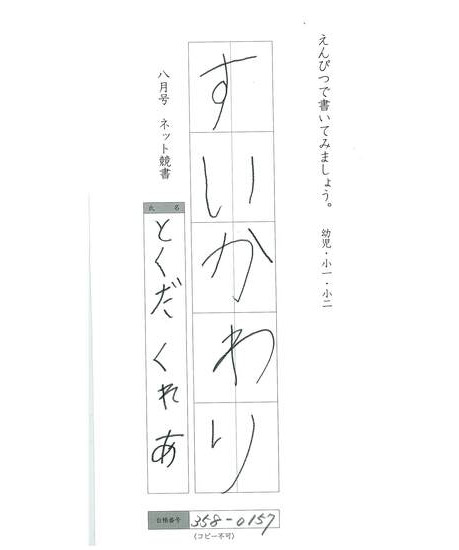 えんぴつで書いてみましょう。　幼児・小一・小二
すいかわり
八月号　ネット競書
氏名
とくだ くれあ
台帳番号 358-0157
(コピー不可)